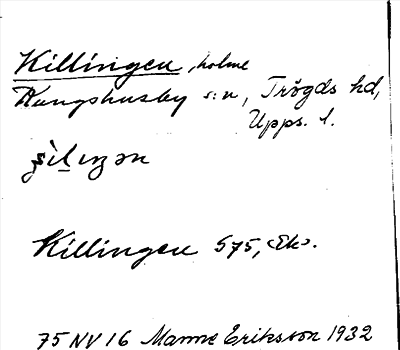 Killingen, holme
Kungshusby s:n, Trögds hd,
Upps. l.
Killingen S75, <Ek>.
75 NV 16 Manne Eriksson 1932